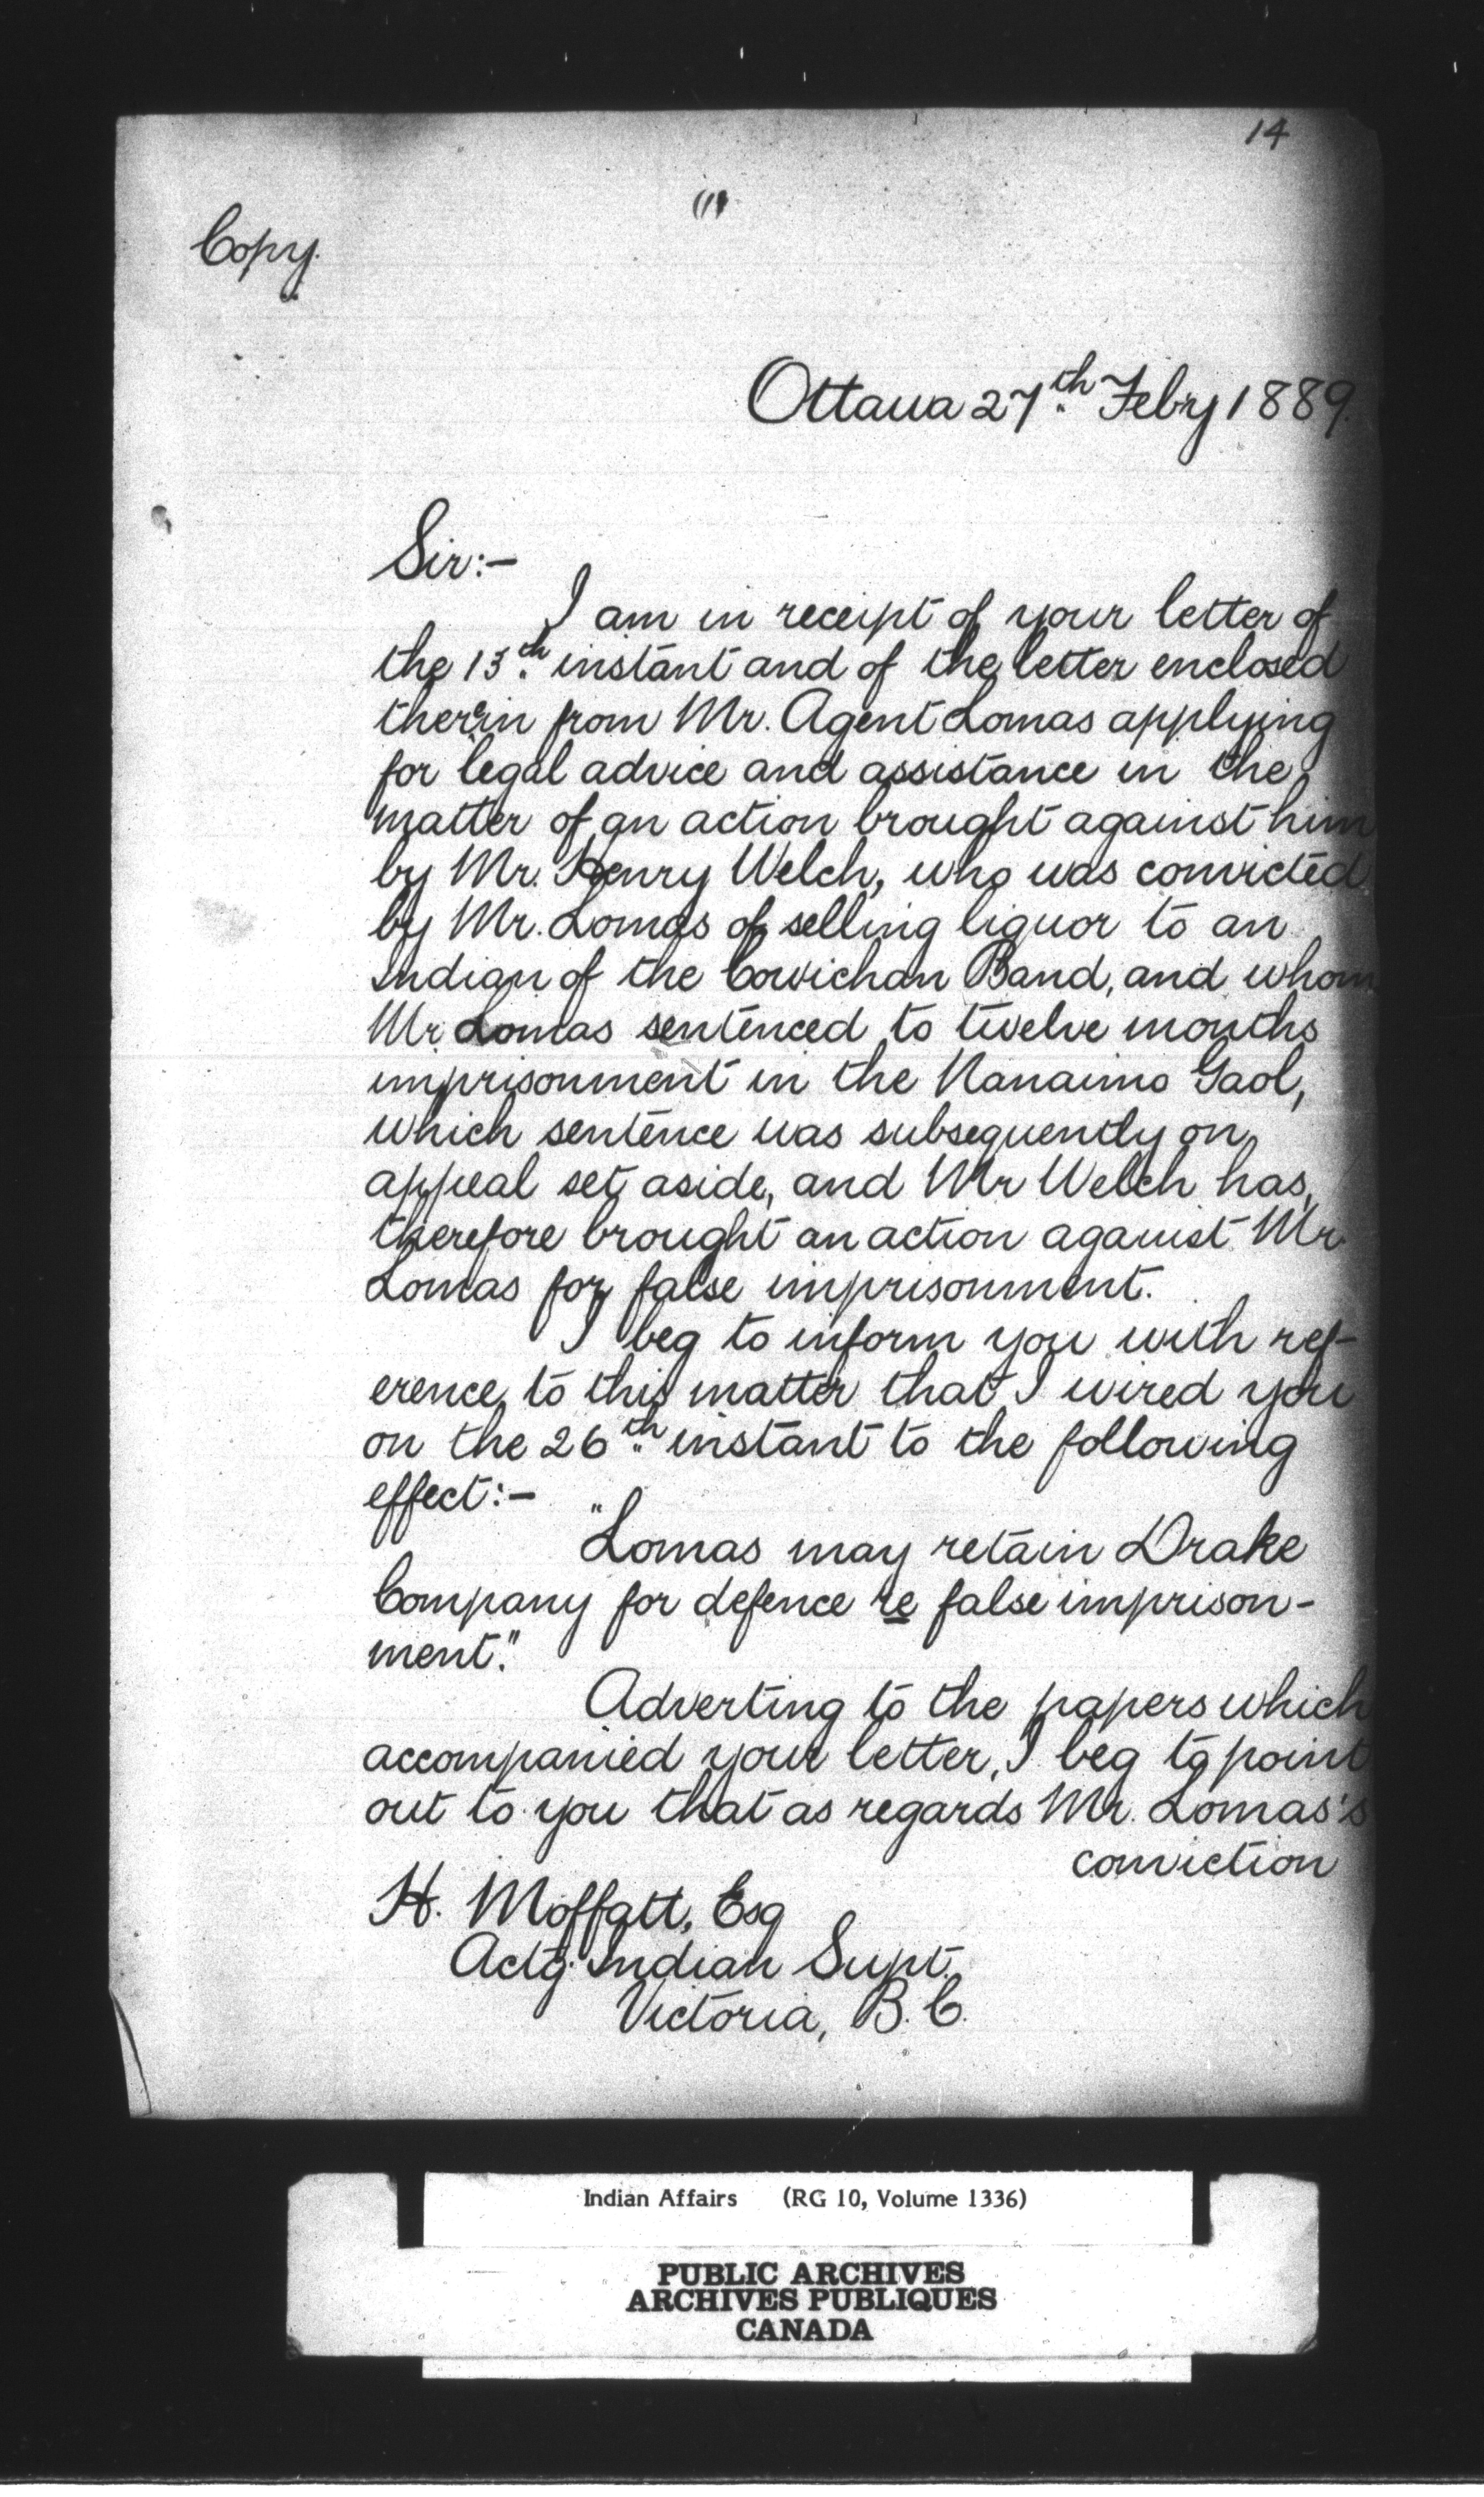 14
Copy.
Ottawa 27th Feby 1889.
Sir:-
I am in receipt of your letter of
the 13th instant and of the letter enclosed
therein from Mr. Agent Lomas applying
for legal advice and assistance in the
matter of an action brought against him
by Mr. Henry Welch, who was convicted
by Mr. Lomas of selling liquor to an
Indian of the Cowichan Band, and whom
Mr Lomas sentenced to twelve months
imprisonment in the Nanaimo Gaol,
which sentence was subsequently on
appeal set aside, and Mr Welch has,
therefore brought an action against Mr.
Lomas for false imprisonment.
I beg to inform you with ref-
erence to this matter that I wired you
on the 26th instant to the following
effect:-
"Lomas may retain Drake
Company for defence re false imprison-
ment."
Adverting to the papers which
accompanied your letter, I beg to point
out to you that as regards Mr. Lomas's
conviction
H. Moffatt, Esq
Actg. Indian Supt.
Victoria, B.C.
Indian Affairs (RG 10, Volume 1336)
PUBLIC ARCHIVES
ARCHIVES PUBLIQUES
CANADA